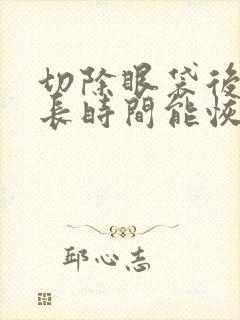 切除眼袋後
長時間能恢
邱心志